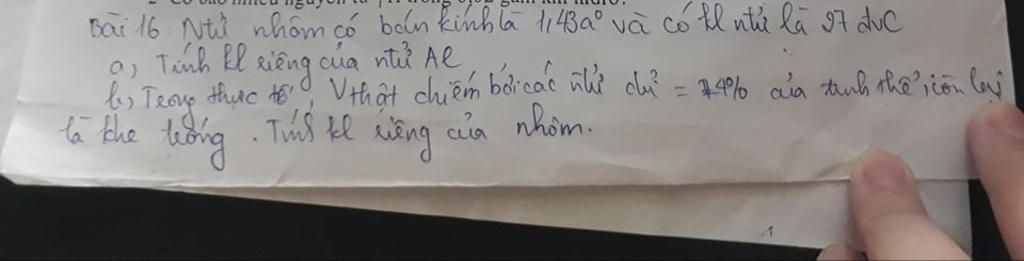 Bài 16: Ntử nhôm có bán kính là 1,43A° và có kl ntử là 27 đvC
a, Tính kl riêng của ntử Al
b, Trong thực tế, Vthật chiếm bởi các ntử chỉ = 74% của tinh thể, còn lại
là khe trống. Tính kl riêng của nhôm.